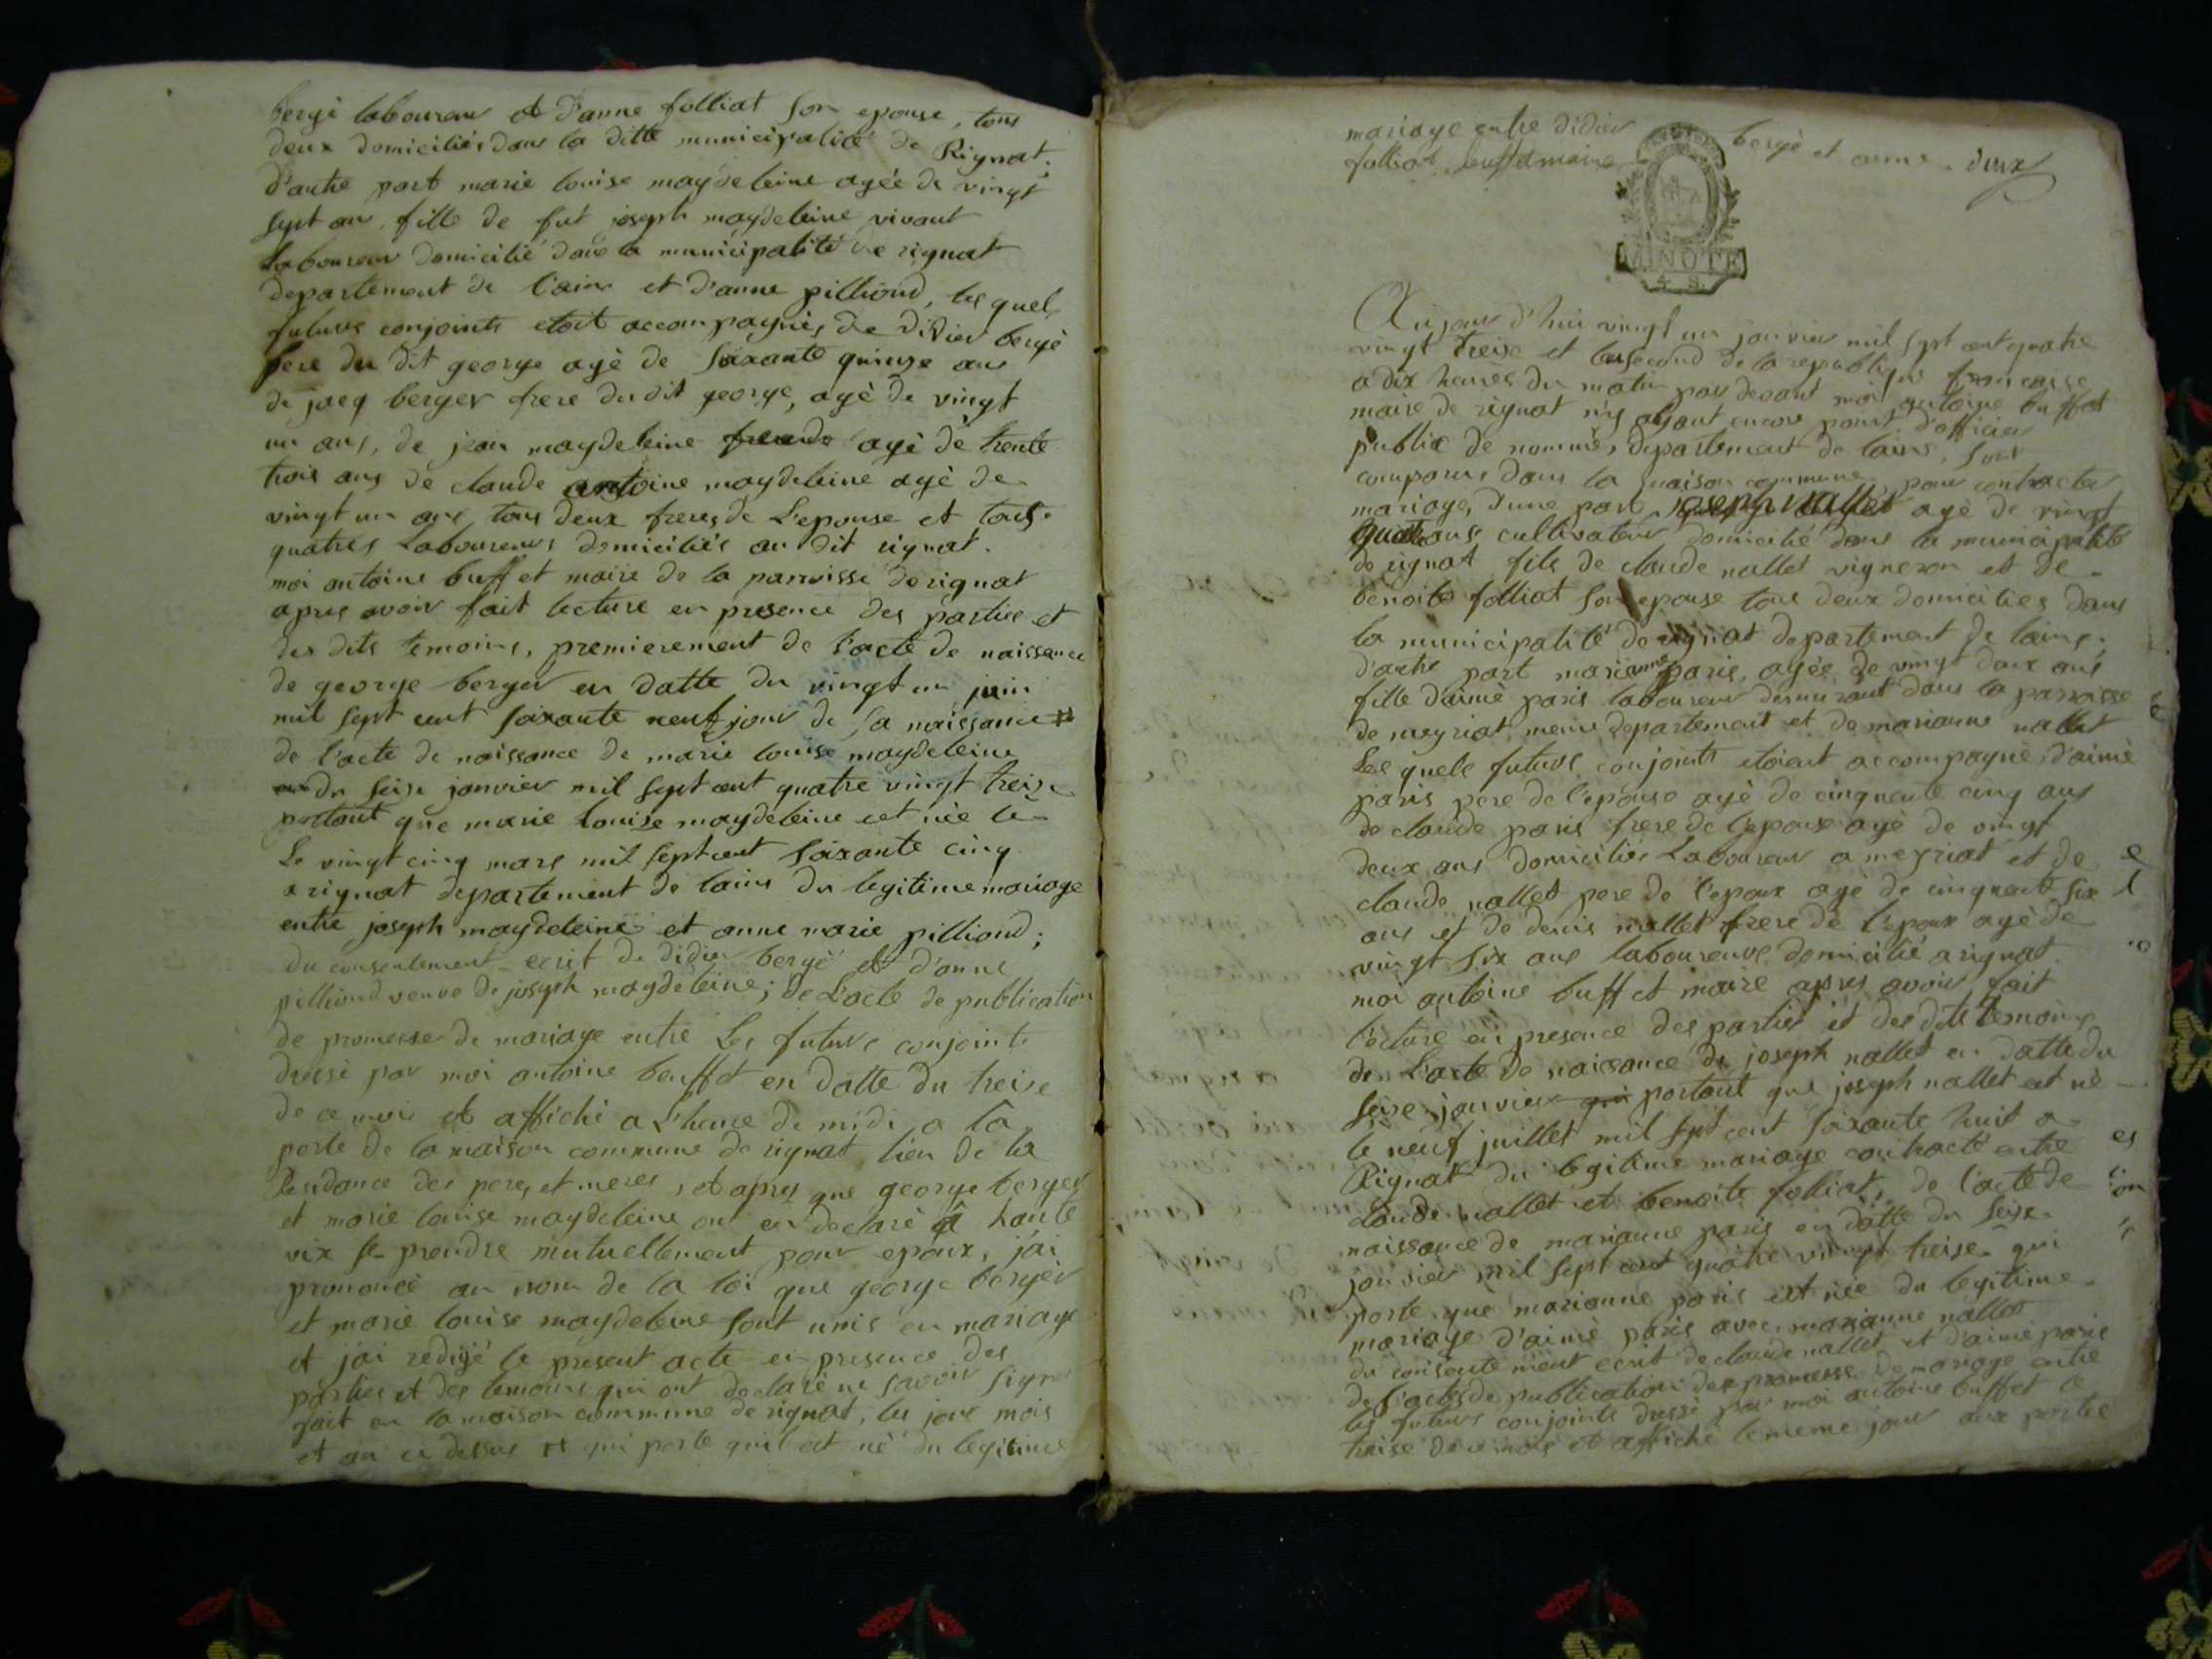 bergé laboureur et d'anne folliat son epouse, tous
deux domiciliés dans la ditte municipalité de Rignat.
d'autre part marie louise maydeleine agée de vingt
sept ans, fille de fut joseph maydeleine vivant
Laboureur domicilié dans la municipalité de rignat
departement de l'ain et d'anne pilliond, les quels
futurs conjoints etoit accompagnés de didier bergé
pere du dit george agé de soixante quinze ans
de jacq berger frere du dit george, agé de vingt
un ans, de jean maydeleine agé de trente
trois ans de claude antoine maydeleine agé de
vingt un ans tous deux freres de L'epouse et tous
quatres Laboureurs domiciliés au dit rignat.
moi antoine buffet maire de la parroisse de rignat
apres avoir fait lecture en presence des parties et
des dits temoins, premierement de l'acte de naissance
de george berger en datte du vingt un juin
mil sept cent soixante neuf jour de sa naissance #
de l'acte de naissance de marie louise maydeleine
du seise janvier mil sept cent quatre vingt treise
portant que marie Louise maydeleine est née le
Le vingt cinq mars mil sept cent soixante cinq
a rignat departement de lains du legitime mariage
entre joseph maydeleine et anne marie pilliond;
du consentement ecrit de didier bergé et d'anne
pilliond veuve de joseph maydeleine; de L'acte de publication
de promesse de mariage entre Les futurs conjoints
dressé par moi antoine beuffet en datte du treise
de ce mois et affiché a L'heure de midi a la
porte de la maison commune de rignat lieu de la
Residance des peres et meres, et apres que george berger
et marie louise maydeleine ont eu declaré a haute
voix se prendre mutuellement pour epoux, j'ai
prononcé au nom de la loi que george berger
et marie louise maydeleine sont unis en mariage
et j'ai redigé le present acte en presence des
parties et des temoins qui ont declaré ne savoir signe
fait en la maison commune de rignat, les jour mois
et an ci dessus # qui porte qu'il est né du legitime
mariage entre didier bergé et anne deux
folliat. buffet maire
MINOTE
4. S.
Aujour d'hui vingt un janvier mil sept cent quatre
vingt treise et le second de la republique francaise
a dix heures du matin par devant moi antoine buffet
maire de rignat n'y ayant encore point d'officier
public de nommé, departement de lains, sont
comparus dans la maison commune pour contracter
mariage, d'une part joseph nallet agé de vingt
quatre ans cultivateur domicilié dans la municipalité
de rignat fils de claude nallet vigneron et de
benoite folliat son epouse tous deux domiciliés dans
la municipalité de rignat departement de lains;
d'autre part marianne paris, agée de vingt deux ans
fille d'aimé paris laboureur demeurant dans la parroisse
de meyriat, meme departement et de marianne nallet
Les quels futurs conjoints etoient accompagné d'aimé
paris pere de l'epouse agé de cinquante cinq ans
de claude paris frere de l'epouse agé de vingt
deux ans domiciliés Laboureur a meyriat et de
claude nallet pere de l'epoux agé de cinquante six
ans et de denis nallet frere de l'epoux agé de
vingt six ans laboureurs domicilié a rignat.
moi antoine buffet maire apres avoir fait
lecture en presence des parties et des dits temoins
de L'acte de naissance de joseph nallet en datte du
seise janvier qui portant que joseph nallet est né
le neuf juillet mil sept cent soixante huit a
Rignat du legitime mariage contracté entre
claude nallet et benoite folliat, de l'acte de
naissance de marianne paris en datte du seise
janvier mil sept cent quatre vingt treise qui
porte que marianne paris est née du legitime
mariage d'aimé paris avec marianne nallet
du consentement ecrit de claude nallet et d'aimé paris
de l'acte de publication des promesse de mariage entre
les futurs conjoints dressé par moi antoine buffet le
treise de ce mois et affiché le meme jour aux portes